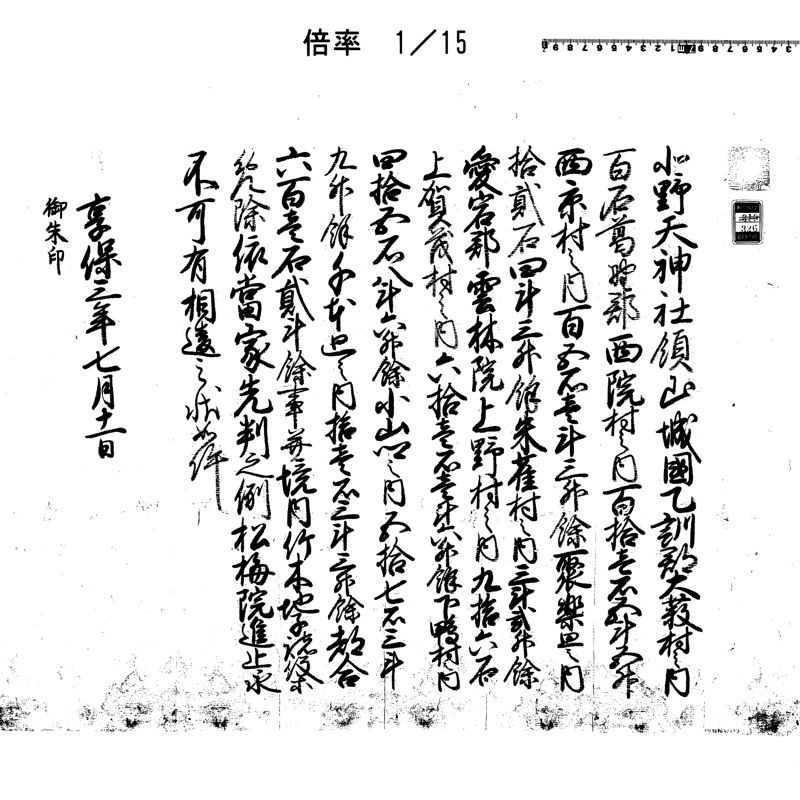 倍率 1/15
北野天神社領山城國乙訓郡大薮村之内
百石葛野郡西院村之内百拾壱石五斗五升
西京村之内百五石壱斗三升餘聚樂廻之内
拾貳石四斗三升餘朱雀村之内三斗貳升餘
愛宕郡雲林院上野村之内九拾六石
上賀茂村之内六拾壱石壱斗六升餘下鴨村内
四拾五石八斗六升餘小山 之内五拾七石三斗
九升餘千本廻之内拾壱石三斗三升餘都合
六百壱石貳斗餘事并境内竹木地子諸役
免除依當家先判之例松梅院進止永
不可有相違之状如件
享保三年七月十一日
御朱印
326